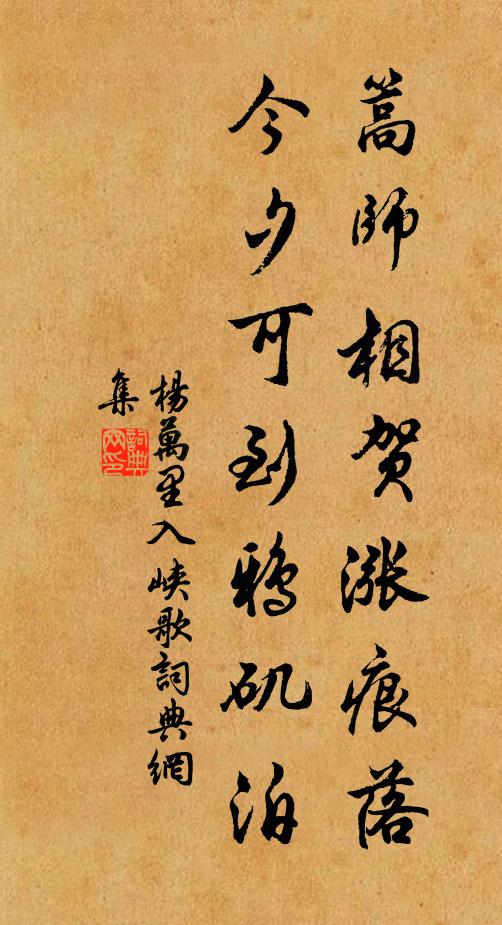 篙師相贺漲痕落
今夕可到鴉矶泊
楊萬里入峽歌詞典網
集
詞典
网印